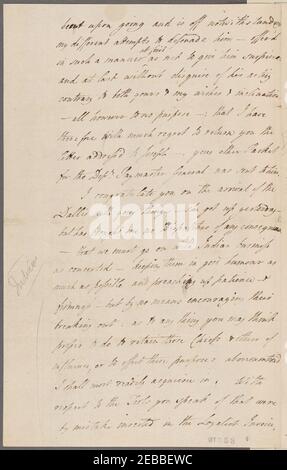 bent upon going and is off notwithstanding
my different attempts to dissuade him — tried
at first
in such a manner as not to give him suspicion
and at last without disguise of his acting
contrary to both yours & my wishes & inclination
— all however to no purpose — that I have
therefore with much regret to return you the
letter addressed to Joseph — your other Packet
for the Depy. Paymaster General was sent
I congratulate you on the arrival of the
got up yesterday
but has brought no Dispatches of any consequence
— that we must go on with Indian business
as concerted — keeping them in good humour as
much as possible and preaching up patience &
— but by no means encouraging their
breaking out, as to any thing you may think
proper to do to retain those Chiefs & others of
influence, or to effect these purposes abovementioned
I shall most readily acquiesce in. With
respect to the Tools you speak of that were
by mistake inserted in the Loyalist Invoice,
Indian
alamy
Image ID: 2EBBEWC
www.alamy.com